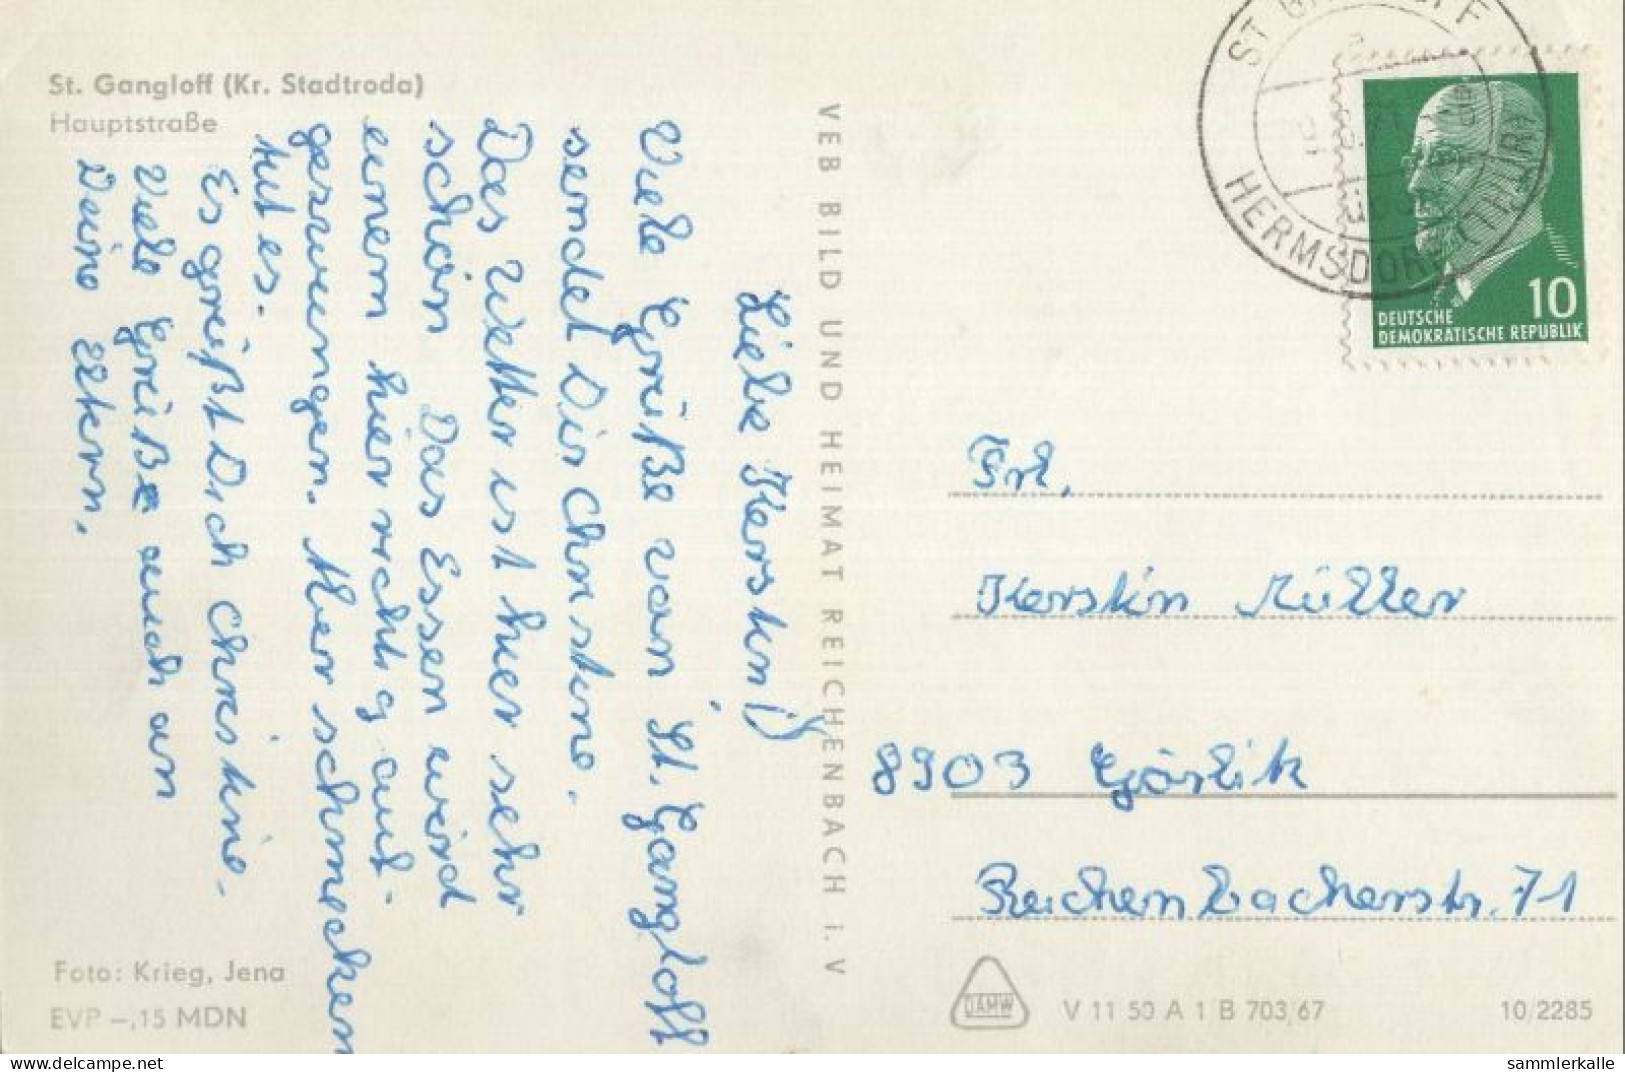 St. Gangloff (Kr. Stadtroda)
Hauptstraße
Liebe Kerstin!
Viele Grüße von St. Gangloff
sendet Dir Christine.
Das Wetter ist hier sehr
schön. Das Essen wird
einem hier richtig auf-
gezwungen. Aber schmecken
tut es.
Es grüßt Dich Christine.
Viele Grüße auch an
Deine Eltern.
Foto: Krieg, Jena
EVP –,15 MDN
VEB BILD UND HEIMAT REICHENBACH i. V
HERMSDORF (THÜR)
10
DEUTSCHE
DEMOKRATISCHE REPUBLIK
Frl.
Kerstin Müller
8903 Görlitz
Reichenbacherstr. 71
DAMW
V 11 50 A 1 B 703/67
10/2285
www.delcampe.net
sammlerkalle